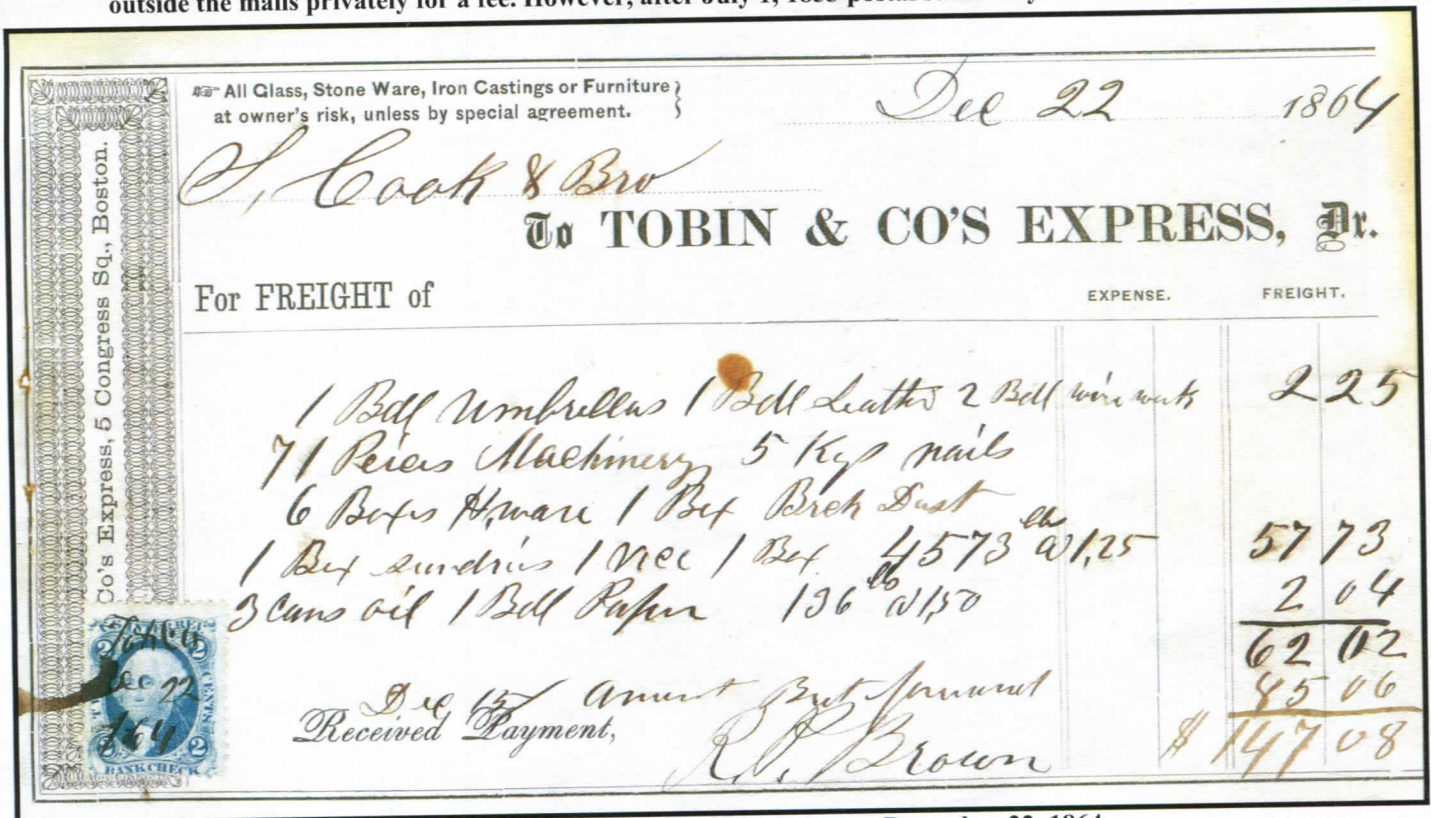 outside the mails privately for a fee. However, after July 1, 1855 postal
All Glass, Stone Ware, Iron Castings or Furniture
at owner's risk, unless by special agreement.
Dec 22 1864
S, Cook & Bro
To TOBIN & CO'S EXPRESS, Dr.
For FREIGHT of
EXPENSE. FREIGHT.
1 Bdl Umbrellas 1 Bdl Leather 2 Bdl wire work 2 25
71 Peices Machinery 5 Kgs nails
6 Boxes H,ware 1 Box Brck Dust
1 Box sundries 1 Vice 1 Box 4573 lbs @ 1,25 57 73
3 cans oil 1 Bdl Paper 136 lb @ 1,50 2 04
62 02
Dec 15/ Amount Brt forward 85 06
Received Payment, R. P. Brown $ 147 08
Co's Express, 5 Congress Sq., Boston.
2 2
CENTS
Dec 22
/64
2 2
BANK CHECK